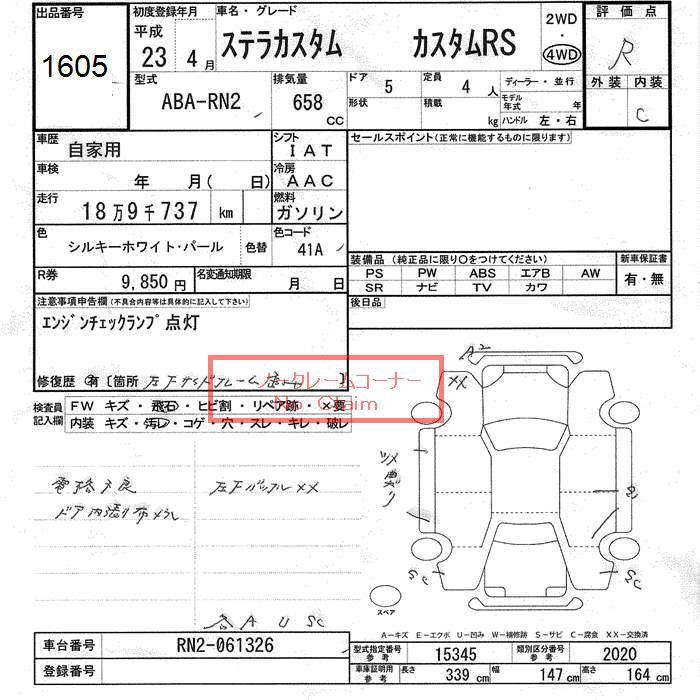 出品番号
1605
初度登録年月
平成
23 4月
車名・グレード
ステラカスタム カスタムRS
2WD
・
4WD
評価点
R
外装 内装
C
型式
ABA-RN2
排気量
658 CC
ドア
5
形状
定員
4 人
積載
kg
ディーラー・並行
モデル年式 年
ハンドル 左・右
車歴
自家用
シフト
IAT
車検
年 月( 日)
冷房
AAC
走行
18万9千737 km
燃料
ガソリン
色
シルキーホワイト・パール
色替
色コード
41A
R券
9,850 円
名変通知期限
月 日
セールスポイント(正常に機能するものに限ります)
装備品(純正品に限り○をつけてください)
PS PW ABS エアB AW
SR ナビ TV カワ
新車保証書
有・無
後日品
注意事項申告欄(不具合内容等は具体的に記入して下さい)
エンジンチェックランプ点灯
修復歴 有〔箇所 〕
ノークレームコーナー
No Claim
検査員記入欄
FW キズ・飛石・ヒビ割・リペア跡・×要
内装 キズ・汚レ・コゲ・穴・スレ・キレ・破レ
A2
XX
SC
SC
スペア
A U SC
A－キズ E－エクボ U－凹み W－補修跡 S－サビ C－腐食 XX－交換済
車台番号
RN2-061326
登録番号
型式指定番号 参考
15345
類別区分番号 参考
2020
車庫証明用 参考
長さ 339 cm 幅 147 cm 高さ 164 cm